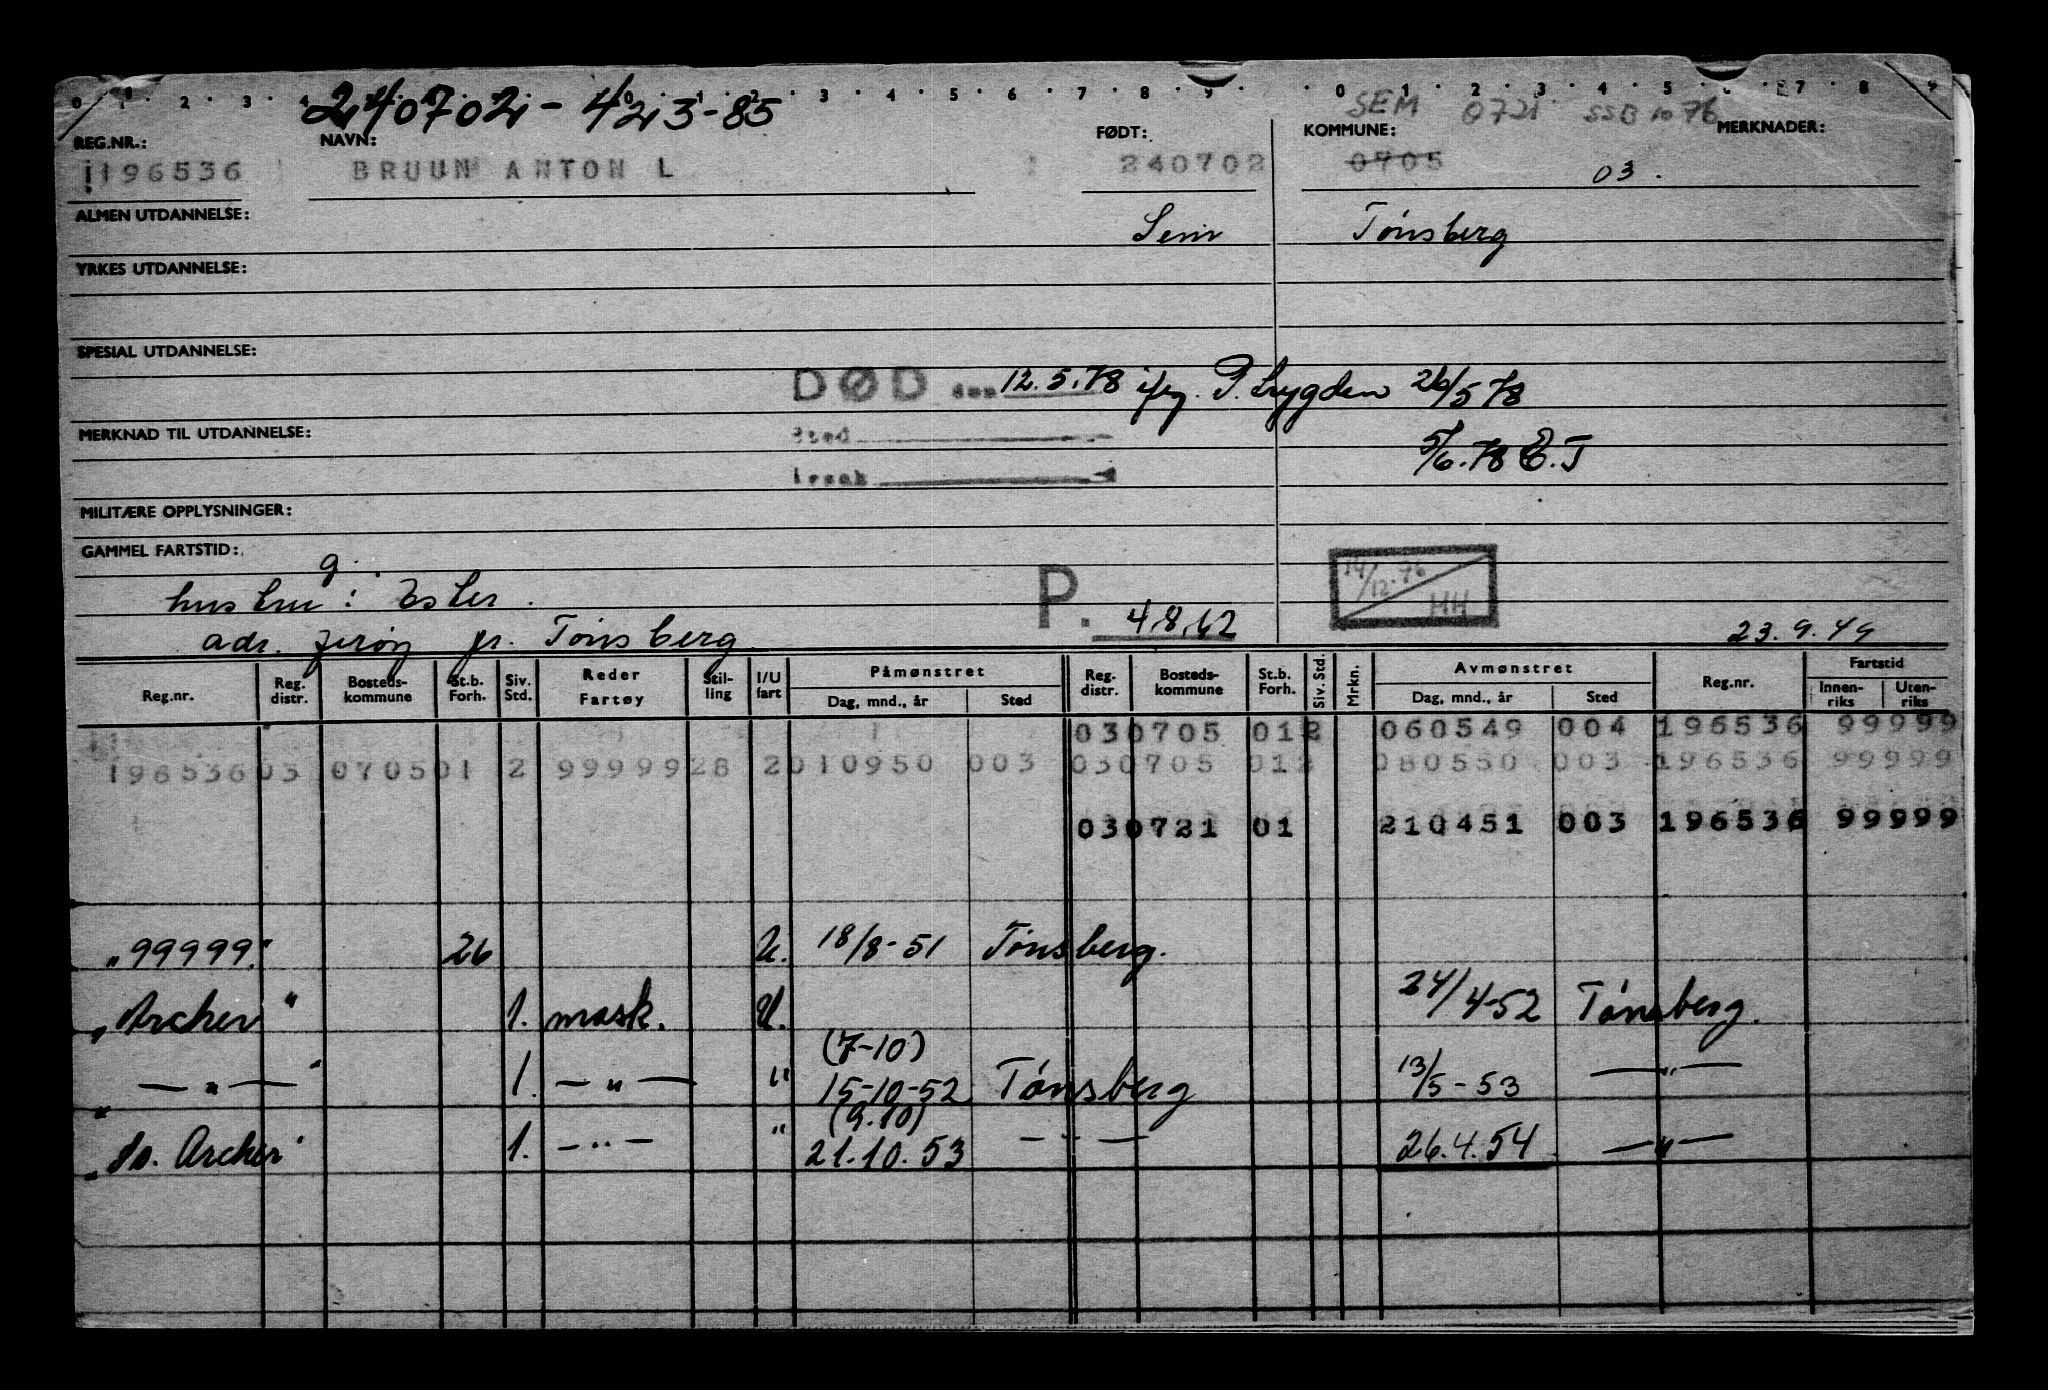 0 1 2 3 4 0 1 2 3 4 5 6 7 8 9 0 1 2 3 4 5 6 7 8 9
240702 - 42 3-85
SEM 0721 SSB 10 76
REG.NR.: NAVN: FØDT: KOMMUNE: MERKNADER:
196536 BRUUN ANTON L 240702 0705 03.
ALMEN UTDANNELSE: Sem Tønsberg
YRKES UTDANNELSE:
SPESIAL UTDANNELSE:
DØD den 12.5.78 ifg. P. Lygden 26/5 78
MERKNAD TIL UTDANNELSE: Sted 5/6.78 E.T
Årsak
MILITÆRE OPPLYSNINGER:
GAMMEL FARTSTID:
g. P. 14/12.76 HH
hustru: Ester.
adr. Jerøy pr. Tønsberg. 4.8.62 23.9.49
Reg.nr. Reg. distr. Bosteds-kommune St.b. Forh. Siv. Std. Reder Fartøy Stil-ling I/U fart Påmønstret Dag, mnd., år Sted Reg. distr. Bosteds-kommune St.b. Forh. Siv. Std. Mrkn. Avmønstret Dag, mnd., år Sted Reg.nr. Fartstid Innen-riks Uten-riks
030705 012 060549 004 196536 99999
196536 03 070501 2 9999928 2010950 003 030705 012 080550 003 196536 99999
030721 01 210451 003 196536 99999
"99999." 26 U. 18/8-51 Tønsberg.
"Archer" 1. mask. U. 24/4-52 Tønsberg.
(7-10)
" — " — " 1. — " — " 15-10-52 Tønsberg 13/5-53 — " —
(9.10)
"Sv. Archer" 1. — " — " 21.10.53 — " — 26.4.54 — " —